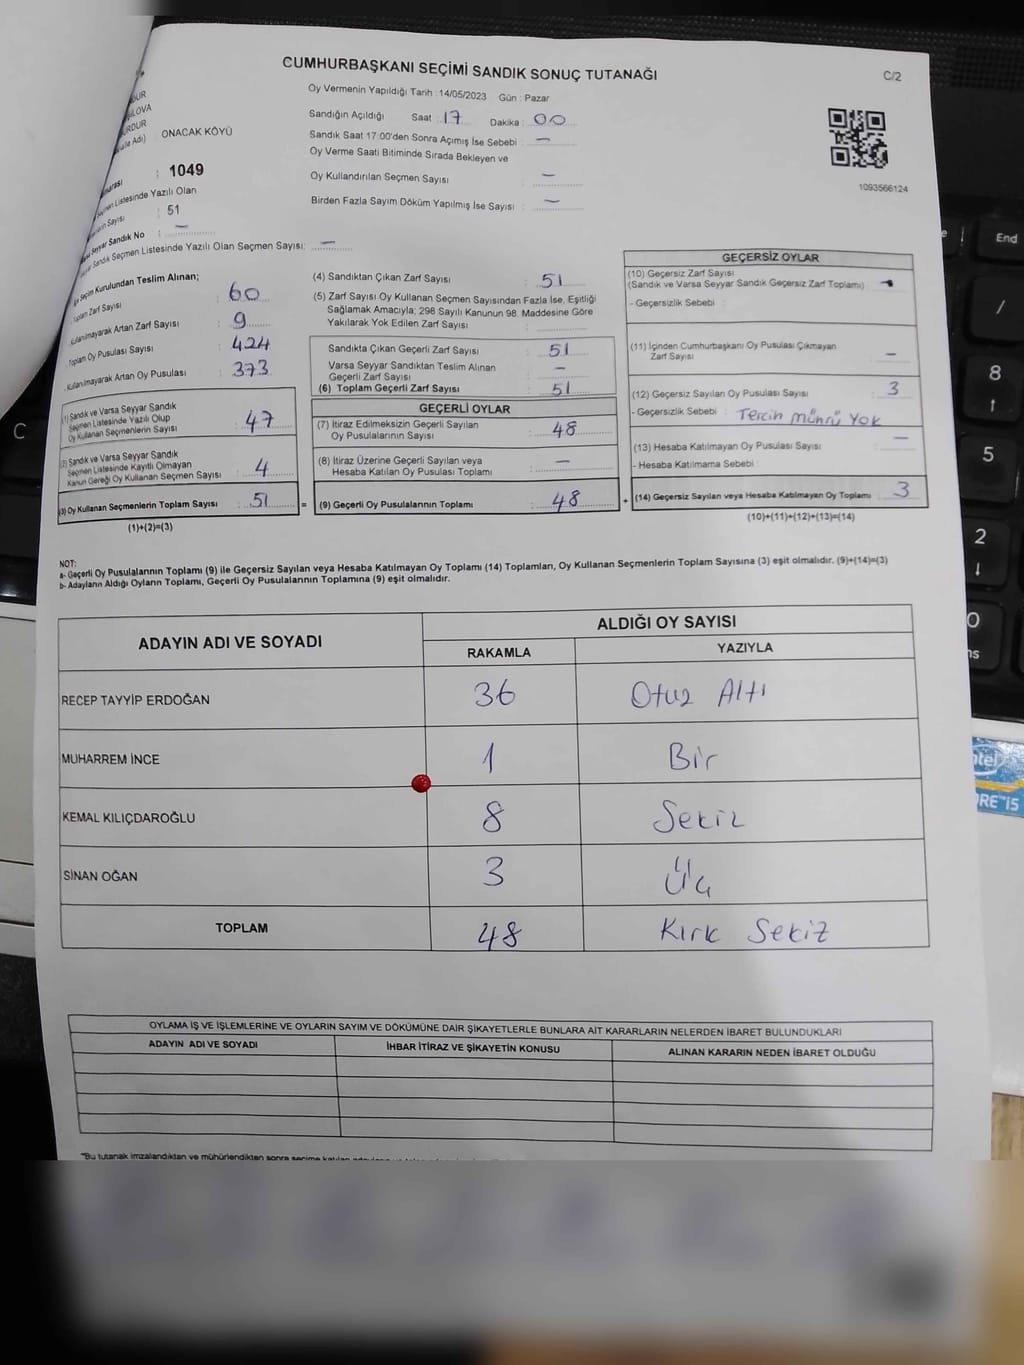 CUMHURBAŞKANI SEÇİMİ SANDIK SONUÇ TUTANAĞI
C/2
Oy Vermenin Yapıldığı Tarih :14/05/2023 Gün : Pazar
Sandığın Açıldığı Saat : 17 Dakika : 00
Sandık Saat 17:00'den Sonra Açımış İse Sebebi : —
Oy Verme Saati Bitiminde Sırada Bekleyen ve
Oy Kullandırılan Seçmen Sayısı : —
Birden Fazla Sayım Döküm Yapılmış İse Sayısı : —
1093566124
ONACAK KÖYÜ
: 1049
Listesinde Yazılı Olan
Sayısı : 51
Seyyar Sandık No : —
Sandık Seçmen Listesinde Yazılı Olan Seçmen Sayısı: —
Seçim Kurulundan Teslim Alınan;
Toplam Zarf Sayısı : 60
Kullanılmayarak Artan Zarf Sayısı : 9
Toplam Oy Pusulası Sayısı : 424
Kullanılmayarak Artan Oy Pusulası : 373
(1) Sandık ve Varsa Seyyar Sandık
Seçmen Listesinde Yazılı Olup
Oy Kullanan Seçmenlerin Sayısı : 47
(2) Sandık ve Varsa Seyyar Sandık
Seçmen Listesinde Kayıtlı Olmayan
Kanun Gereği Oy Kullanan Seçmen Sayısı : 4
(3) Oy Kullanan Seçmenlerin Toplam Sayısı : 51 =
(1)+(2)=(3)
(4) Sandıktan Çıkan Zarf Sayısı : 51
(5) Zarf Sayısı Oy Kullanan Seçmen Sayısından Fazla İse, Eşitliği
Sağlamak Amacıyla; 298 Sayılı Kanunun 98. Maddesine Göre
Yakılarak Yok Edilen Zarf Sayısı :
Sandıkta Çıkan Geçerli Zarf Sayısı : 51
Varsa Seyyar Sandıktan Teslim Alınan
Geçerli Zarf Sayısı : —
(6) Toplam Geçerli Zarf Sayısı : 51
GEÇERLİ OYLAR
(7) İtiraz Edilmeksizin Geçerli Sayılan
Oy Pusulalarının Sayısı : 48
(8) İtiraz Üzerine Geçerli Sayılan veya
Hesaba Katılan Oy Pusulası Toplamı : —
(9) Geçerli Oy Pusulalarının Toplamı : 48 +
GEÇERSİZ OYLAR
(10) Geçersiz Zarf Sayısı
(Sandık ve Varsa Seyyar Sandık Geçersiz Zarf Toplamı) : —
- Geçersizlik Sebebi :
(11) İçinden Cumhurbaşkanı Oy Pusulası Çıkmayan
Zarf Sayısı : —
(12) Geçersiz Sayılan Oy Pusulası Sayısı : 3
- Geçersizlik Sebebi : Tercih mührü Yok
(13) Hesaba Katılmayan Oy Pusulası Sayısı : —
- Hesaba Katılmama Sebebi :
(14) Geçersiz Sayılan veya Hesaba Katılmayan Oy Toplamı : 3
(10)+(11)+(12)+(13)=(14)
NOT:
a- Geçerli Oy Pusulalarının Toplamı (9) ile Geçersiz Sayılan veya Hesaba Katılmayan Oy Toplamı (14) Toplamları, Oy Kullanan Seçmenlerin Toplam Sayısına (3) eşit olmalıdır. (9)+(14)=(3)
b- Adayların Aldığı Oyların Toplamı, Geçerli Oy Pusulalarının Toplamına (9) eşit olmalıdır.
ADAYIN ADI VE SOYADI
ALDIĞI OY SAYISI
RAKAMLA YAZIYLA
RECEP TAYYİP ERDOĞAN 36 Otuz Altı
MUHARREM İNCE 1 Bir
KEMAL KILIÇDAROĞLU 8 Sekiz
SİNAN OĞAN 3 Üç
TOPLAM 48 Kırk Sekiz
OYLAMA İŞ VE İŞLEMLERİNE VE OYLARIN SAYIM VE DÖKÜMÜNE DAİR ŞİKAYETLERLE BUNLARA AİT KARARLARIN NELERDEN İBARET BULUNDUKLARI
ADAYIN ADI VE SOYADI İHBAR İTİRAZ VE ŞİKAYETİN KONUSU ALINAN KARARIN NEDEN İBARET OLDUĞU
"Bu tutanak imzalandıktan ve mühürlendikten sonra seçime katılan
End
/
8
↑
5
2
↓
0
C
intel
CORE i5